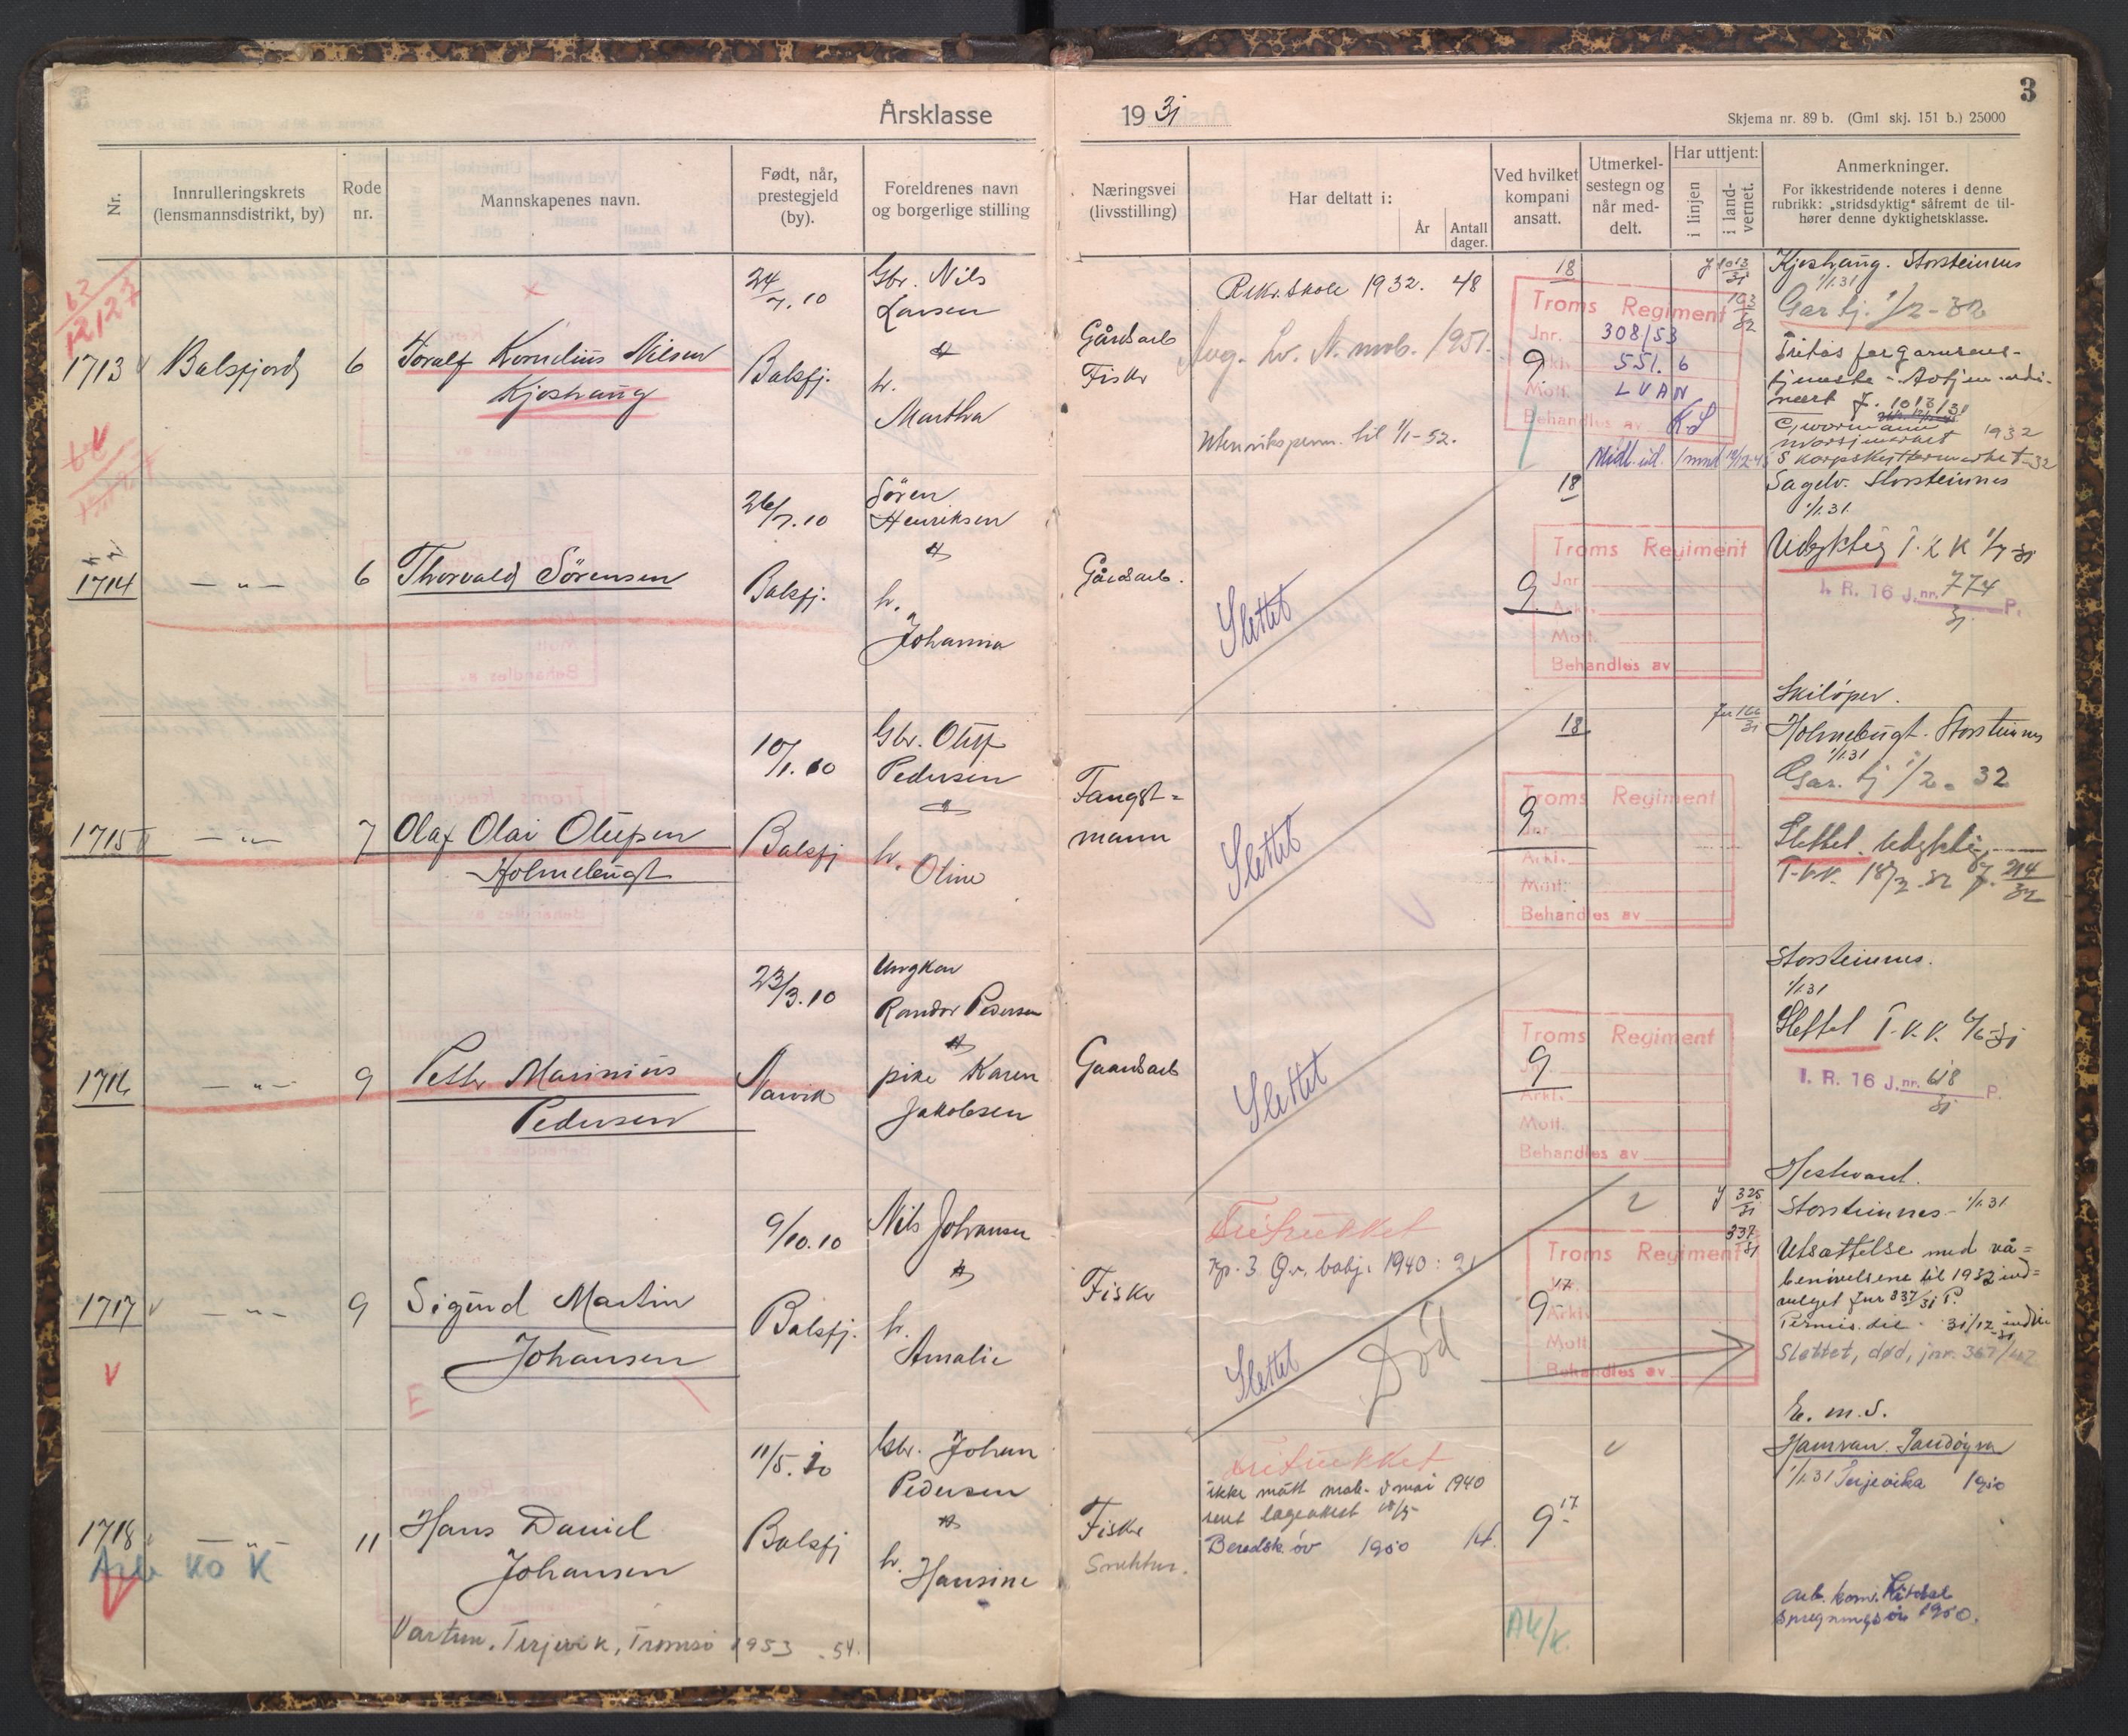 Årsklasse
1931
3
Skjema nr. 89 b. (Gml skj. 151 b.) 25000
Nr.
Innrulleringskrets
(lensmannsdistrikt, by)
Rode
nr.
Mannskapenes navn.
Født, når,
prestegjeld
(by).
Foreldrenes navn
og borgerlige stilling
Næringsvei
(livsstilling)
Har deltatt i:
År
Antall
dager.
Ved hvilket
kompani
ansatt.
Utmerkel-
sestegn og
når med-
delt.
Har uttjent:
i linjen
i land-
vernet.
Anmerkninger.
For ikkestridende noteres i denne
rubrikk: „stridsdyktig“ såfremt de til-
hører denne dyktighetsklasse.
1713
Balsfjord
6
Toralf Kornelius Nilsen
Kjoshaug
24/7.10
Balsfj.
Gbr. Nils
Larsen
h.
Martha
Gårdsarb
Fisker
Rekr.skole 1932. 48
Aug. Lv. N. mob. 1951.
Utenriksperm. til 1/1-52.
18
9
Troms Regiment
Jnr. 308/53
Arkl. 551.6
Mott. LVAN
Behandles av
Midl. ud. 1 mnd
J 1013/31
Kjoshaug. Storsteinnes
1/1.31
Gar tj. 1/2-32
J. 1013/31
1932
1714
— „ —
6
Thorvald Sörensen
26/7.10
Balsfj.
Sören
Henriksen
h.
Johanna
Gårdsarb.
Slettet
18
9
Troms Regiment
Jnr
Arkl.
Mott.
Behandles av
Sagelv. Storsteinnes
1/1.31
Udyktig T.K.K 1/7-31
I. R. 16 J.nr. 774/31 P.
1715
— „ —
7
Olaf Olai Olufsen
Holmebugt
10/1.10
Balsfj
Gbr. Oluf
Pedersen
h.
Oline
Fangst=
mann
Slettet
18
9
Troms Regiment
Jnr.
Arkl.
Mott.
Behandles av
Jnr 166/31
Skilöper.
Holmebugt. Storsteinnes
1/1.31
Gar. tj 1/2. 32
Slettet. Udyktig
J. 214/32
1716
— „ —
9
Peder Marinius
Pedersen
23/3.10
Narvik
Ungkar
Randor Pedersen
pike Karen
Jakobsen
Gaardsarb
Slettet
9
Troms Regiment
Arkl.
Mott.
Behandles av
Storsteinnes.
1/1.31
Slettet T.K.K. 6/6-31
I. R. 16 J.nr. 618/31 P.
1717
— „ —
9
Sigurd Martin
Johansen
9/10.10
Balsfj.
Nils Johansen
h.
Amalie
Fisker
Inntrukket
kp. 3. 1940: 21
Slettet
Død
9
17
Troms Regiment
Arkl.
Mott
Behandles av
J 325/31
337/31
Hestevant.
Storsteinnes - 1/1.31
Utsættelse med vå=
benövelsene til 1932 ind=
vilget Jnr 337/31 P.
Permis. til 31/12-31
Slettet, død, jnr. 367/47
1718
— „ —
11
Hans Daniel
Johansen
Vartun, Terjevik, Tromsö 1953-54.
11/5.10
Balsfj
Gbr. Johan
Pedersen
h.
Hansine
Fisker
Snekker.
Inntrukket
ikke mött mob. i mai 1940
sent lægeattest 18/5
Beredsk. öv 1950 14.
9
17
AK/K.
E. m. S.
Hamvan. Sandöyra
1/1.31 Terjevika 1950
Arb. kom. Kitdal
Sprengningsöv 1950.
Arb KO K